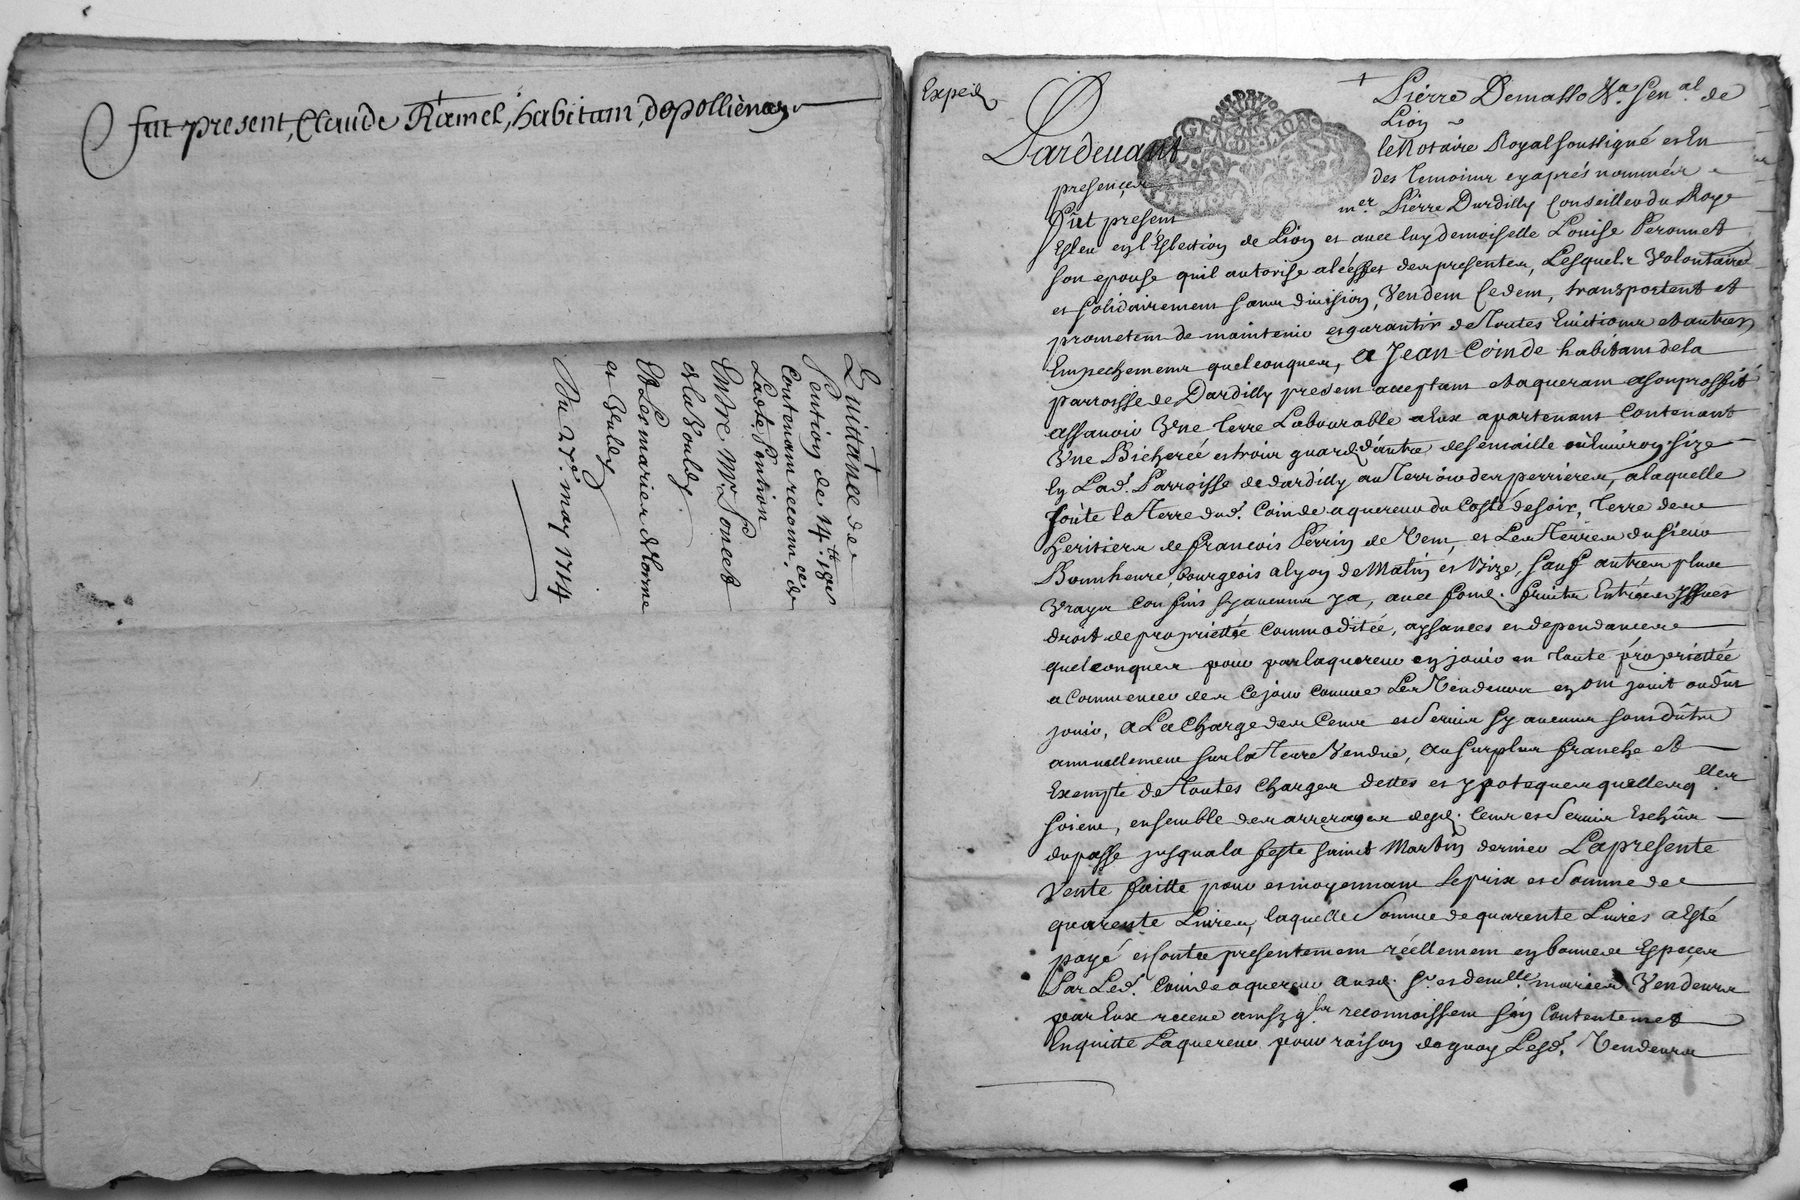 fut present, Claude Ramel, habitant, de pollienay
Quittance de
Pention de 14ᵗᵗ 18ˢ
Contenant reconn.ce de
Lade. Pention
Entre Mr. Poncet
de la Voulde
Et Les mariez Delorme
et Gulley
Du 27e. may 1714
Exped
Pierre Demasso Na. Sen.al de
Lion
GEN DE LION
Pardevant le Notaire Royal soussigné et En
presence des temoins cy aprés nommés
fût present mer. Pierre Dardilly Conseiller du Roy
Esleu en l'Eslection de Lion et avec luy demoiselle Louise Peronnet
son epouse quil autorise a leffet des presentes, Lesquels Volontaires
et solidairement sans division, Vendent Cedent, transportent et
prometent de maintenir et garantir de toutes Evictions et autres
Empechements quelconques, a Jean Coinde habitant de la
parroisse de Dardilly present acceptant et aquerant a son proffit
assavoir Vne terre Labourable a Eux apartenant Contenant
Vne Bicherée et trois quards d'autre de semaille ou Environ size
en Lad. Parroisse de dardilly au terroir des perrieres, a laquelle
joûte la terre dud. Coinde aquereur du Costé de soir, terre des
heritiers de francois Perrin de Vent, et Les terres du sieur
Bonnheure, bourgeois a lyon de Matin et Bize, sauf autres plus
Vrays Confins sy aucuns y a, avec fond. fruits Entrées yssues
droit de propriettée Commoditée, aysances et dependances
quelconques pour par laquereur en jouir en toute propriettée
a Commencer des ce jour comme Les Vendeurs en ont jouit ou dût
jouir, a La Charge des Cens et Servis sy aucuns sont dûtes
annuellement sur la terre Vendue, au surplus franche et
Exempte de toutes Charges dettes et ypoteques quelles q elles
soient, ensemble des arrerages desd. Cens et Servis Eschûs
du passe jusqua la feste saint Martin dernier La presente
Vente faitte pour et moyennant Le prix et Somme de
quarente Livres, laquelle Somme de quarente Livres a esté
payé et contée presentement réellement en bonnes Especes
Par Led. Coinde aquereur ausd. Sr. et demlle. mariez Vendeurs
par Eux receue ainsy q ils reconnoissent s'en Contentent et
En quitte Laquereur pour raison de quoy Lesd. Vendeurs